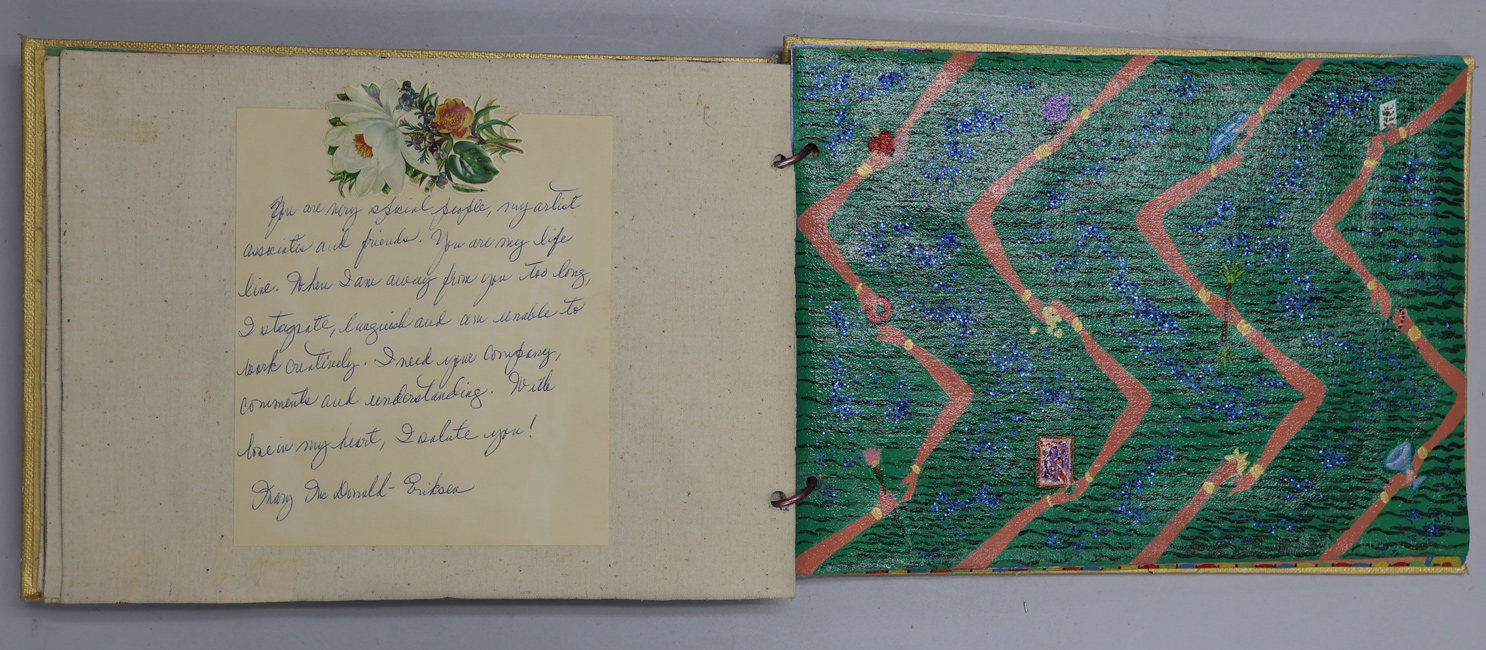 You are very special people, my artist
associates and friends. You are my life
line. When I am away from you too long,
I stagnate, languish and am unable to
work creatively. I need your company,
comments and understanding. With
love in my heart, I salute you!
Mary MacDonald-Eriksen